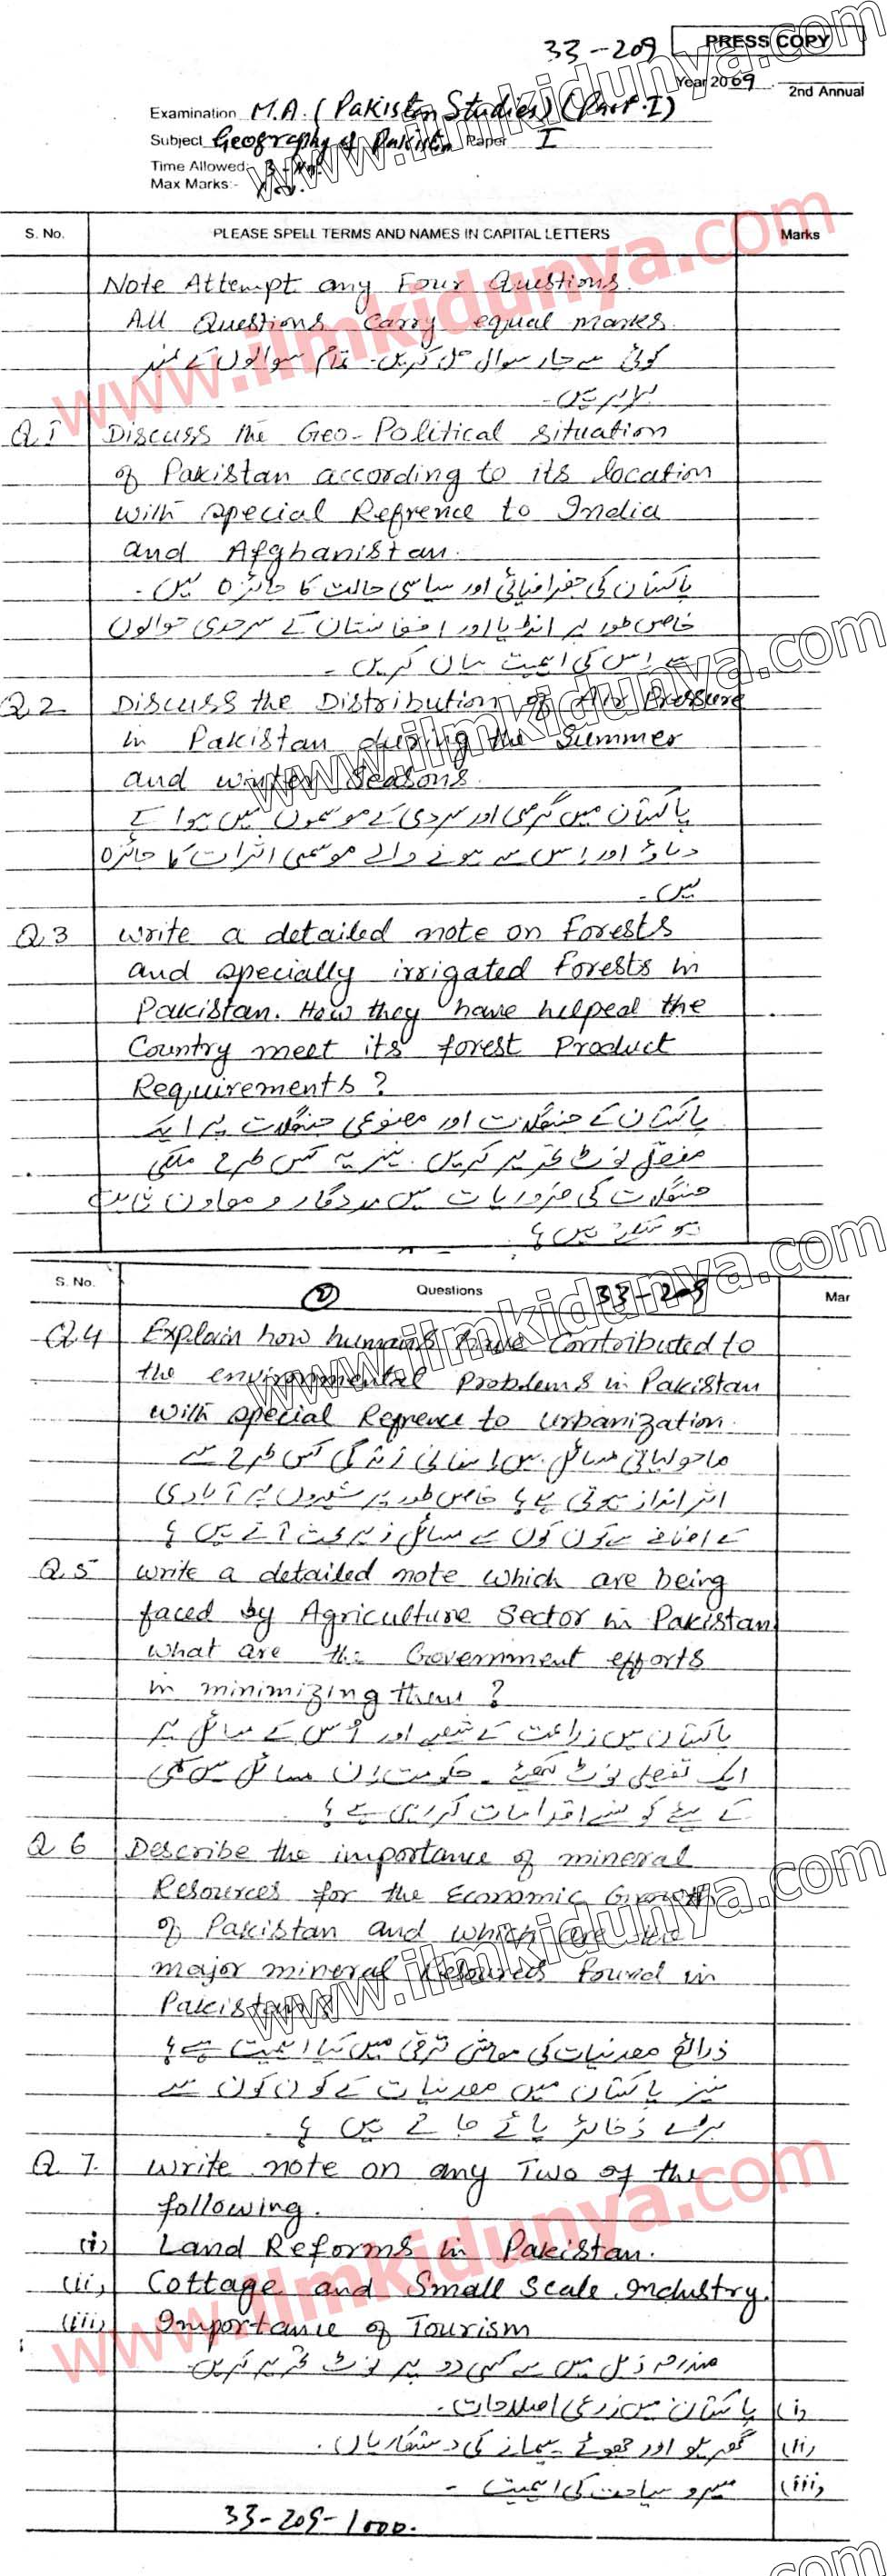 33-209
PRESS COPY
Year 2009
2nd Annual
Examination M.A. (Pakistan Studies) (Part-I)
Subject Geography of Pakistan Paper I
Time Allowed:
Max Marks:-
S. No. PLEASE SPELL TERMS AND NAMES IN CAPITAL LETTERS Marks
Note Attempt any Four Questions.
All Questions carry equal marks.
کوئی سے چار سوال حل کریں۔ تمام سوالوں کے نمبر
برابر ہیں۔
Q1 Discuss the Geo-Political situation
of Pakistan according to its location
with special Refrence to India
and Afghanistan.
پاکستان کی جغرافیائی اور سیاسی حالت کا جائزہ لیں۔
خاص طور پر انڈیا اور افغانستان کے سرحدی حوالوں
سے اس کی اہمیت بیان کریں۔
Q.2 Discuss the Distribution of Air Pressure
in Pakistan during the Summer
and winter Seasons.
پاکستان میں گرمی اور سردی کے موسموں میں ہوا کے
دباؤ اور اس سے ہونے والے موسمی اثرات کا جائزہ
لیں۔
Q.3 Write a detailed note on Forests
and specially irrigated Forests in
Pakistan. How they have helped the
Country meet its forest Product
Requirements?
پاکستان کے جنگلات اور مصنوعی جنگلات پر ایک
مفصل نوٹ تحریر کریں۔ نیز یہ کس طرح ملکی
جنگلات کی ضروریات میں مددگار و معاون ثابت
ہو سکتے ہیں؟
S. No. (2) Questions 33-209 Mar
Q.4 Explain how humans have Contributed to
the environmental Problems in Pakistan
with special Refrence to urbanization.
ماحولیاتی مسائل میں انسانی زندگی کس طرح سے
اثر انداز ہوتی ہے؟ خاص طور پر شہروں پر آبادی
کے اضافے سے کون کون سے مسائل زیر بحث آتے ہیں؟
Q.5 Write a detailed note which are being
faced by Agriculture Sector in Pakistan
What are the Government efforts
in minimizing them?
پاکستان میں زراعت کے شعبے اور اُس کے مسائل پر
ایک تفصیلی نوٹ لکھیئے۔ حکومت ان مسائل میں کمی
کے لیے کونسے اقدامات کر رہی ہے؟
Q 6 Describe the importance of mineral
Resources for the Economic Growth
of Pakistan and which are the
major mineral Resources found in
Pakistan?
ذرائع معدنیات کی معاشی ترقی میں کیا اہمیت ہے؟
نیز پاکستان میں معدنیات کے کون کون سے
بڑے ذخائر پائے جاتے ہیں؟
Q 7. Write note on any Two of the
following.
(i) Land Reforms in Pakistan.
(ii) Cottage and Small Scale Industry.
(iii) Importance of Tourism
مندرجہ ذیل میں سے کسی دو پر نوٹ تحریر کریں۔
(i) پاکستان میں زرعی اصلاحات۔
(ii) گھریلو اور چھوٹے پیمانے کی دستکاریاں۔
(iii) سیر و سیاحت کی اہمیت۔
33-209-1000.
www.ilmkidunya.com
www.ilmkidunya.com
www.ilmkidunya.com
www.ilmkidunya.com
www.ilmkidunya.com
www.ilmkidunya.com